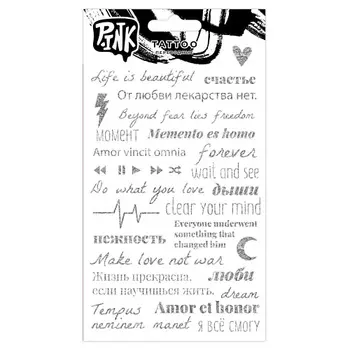 PINK
TATTOO
ПЕРЕВОДНЫЕ
Life is beautiful счастье
От любви лекарства нет.
Beyond fear lies freedom
МОМЕНТ Memento es homo
Amor vincit omnia forever
wait and see
Do what you love дыши
clear your mind
Everyone underwent
something that
changed him
нежность
Make love not war
Жизнь прекрасна, люби
если научишься жить. dream
Tempus Amor et honor
neminem manet я всё смогу